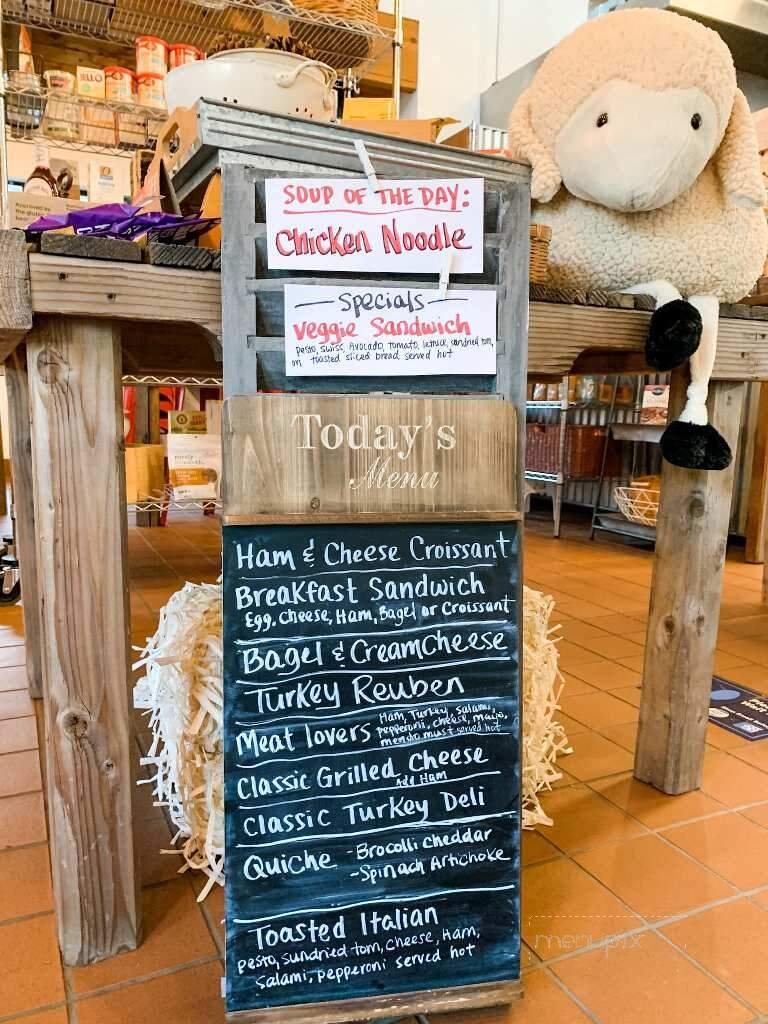 JELL-O
SOUP OF THE DAY:
Chicken Noodle
Specials
Veggie Sandwich
pesto, swiss, Avocado, tomato, lettuce, sundried tom,
on toasted sliced bread served hot
Today's
Menu
Ham & Cheese Croissant
Breakfast Sandwich
Egg, Cheese, Ham, Bagel or Croissant
Bagel & CreamCheese
Turkey Reuben
Meat lovers
Ham, Turkey, Salami,
pepperoni, cheese, mayo,
served hot
Classic Grilled Cheese
Add Ham
Classic Turkey Deli
Quiche -Brocolli cheddar
-Spinach Artichoke
Toasted Italian
pesto, sundried tom, cheese, Ham,
salami, pepperoni served hot
menupix